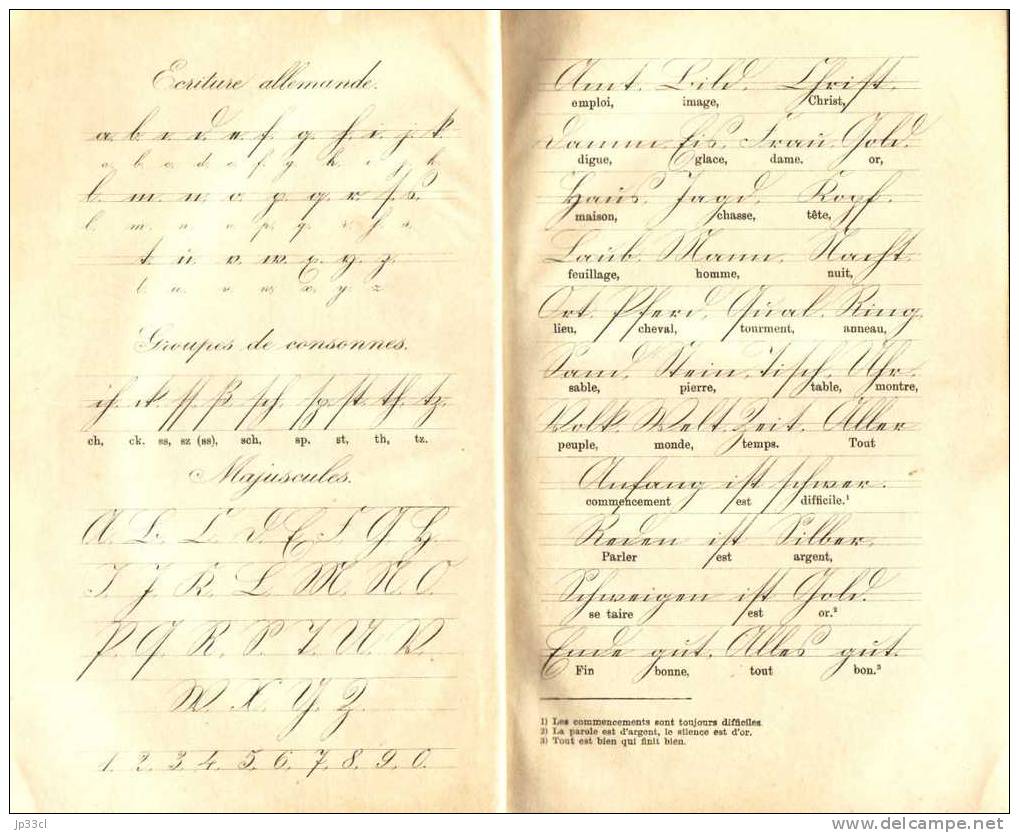 Ecriture allemande.
a. b. c. d. e. f. g. h. i. j. k.
a. b. c. d. e. f. g. h. i. j. k.
l. m. n. o. p. q. r. ſ. s.
l. m. n. o. p. q. r. ſ. s.
t. u. v. w. x. y. z.
t. u. v. w. x. y. z.
Groupes de consonnes.
ch. ck. ſſ. ß. ſch. ſp. ſt. th. tz.
ch, ck. ss, sz (ss), sch, sp. st, th, tz.
Majuscules.
A. B. C. D. E. F. G. H.
I. J. K. L. M. N. O.
P. Q. R. S. T. U. V.
W. X. Y. Z.
1. 2. 3. 4. 5. 6. 7. 8. 9. 0.
Amt. Bild. Chriſt.
emploi, image, Christ,
Damm. Eis. Frau. Gold.
digue, glace, dame. or,
Haus. Jagd. Kopf.
maison, chasse, tête,
Laub. Mann. Nacht.
feuillage, homme, nuit,
Ort. Pferd. Qual. Ring.
lieu, cheval, tourment, anneau,
Sand. Stein. Tiſch. Uhr.
sable, pierre, table, montre,
Volk. Welt. Zeit. Aller
peuple, monde, temps. Tout
Anfang iſt ſchwer.
commencement est difficile.¹
Reden iſt Silber,
Parler est argent,
Schweigen iſt Gold.
se taire est or.²
Ende gut, Alles gut.
Fin bonne, tout bon.³
1) Les commencements sont toujours difficiles.
2) La parole est d'argent, le silence est d'or.
3) Tout est bien qui finit bien.
jp33cl
www.delcampe.net